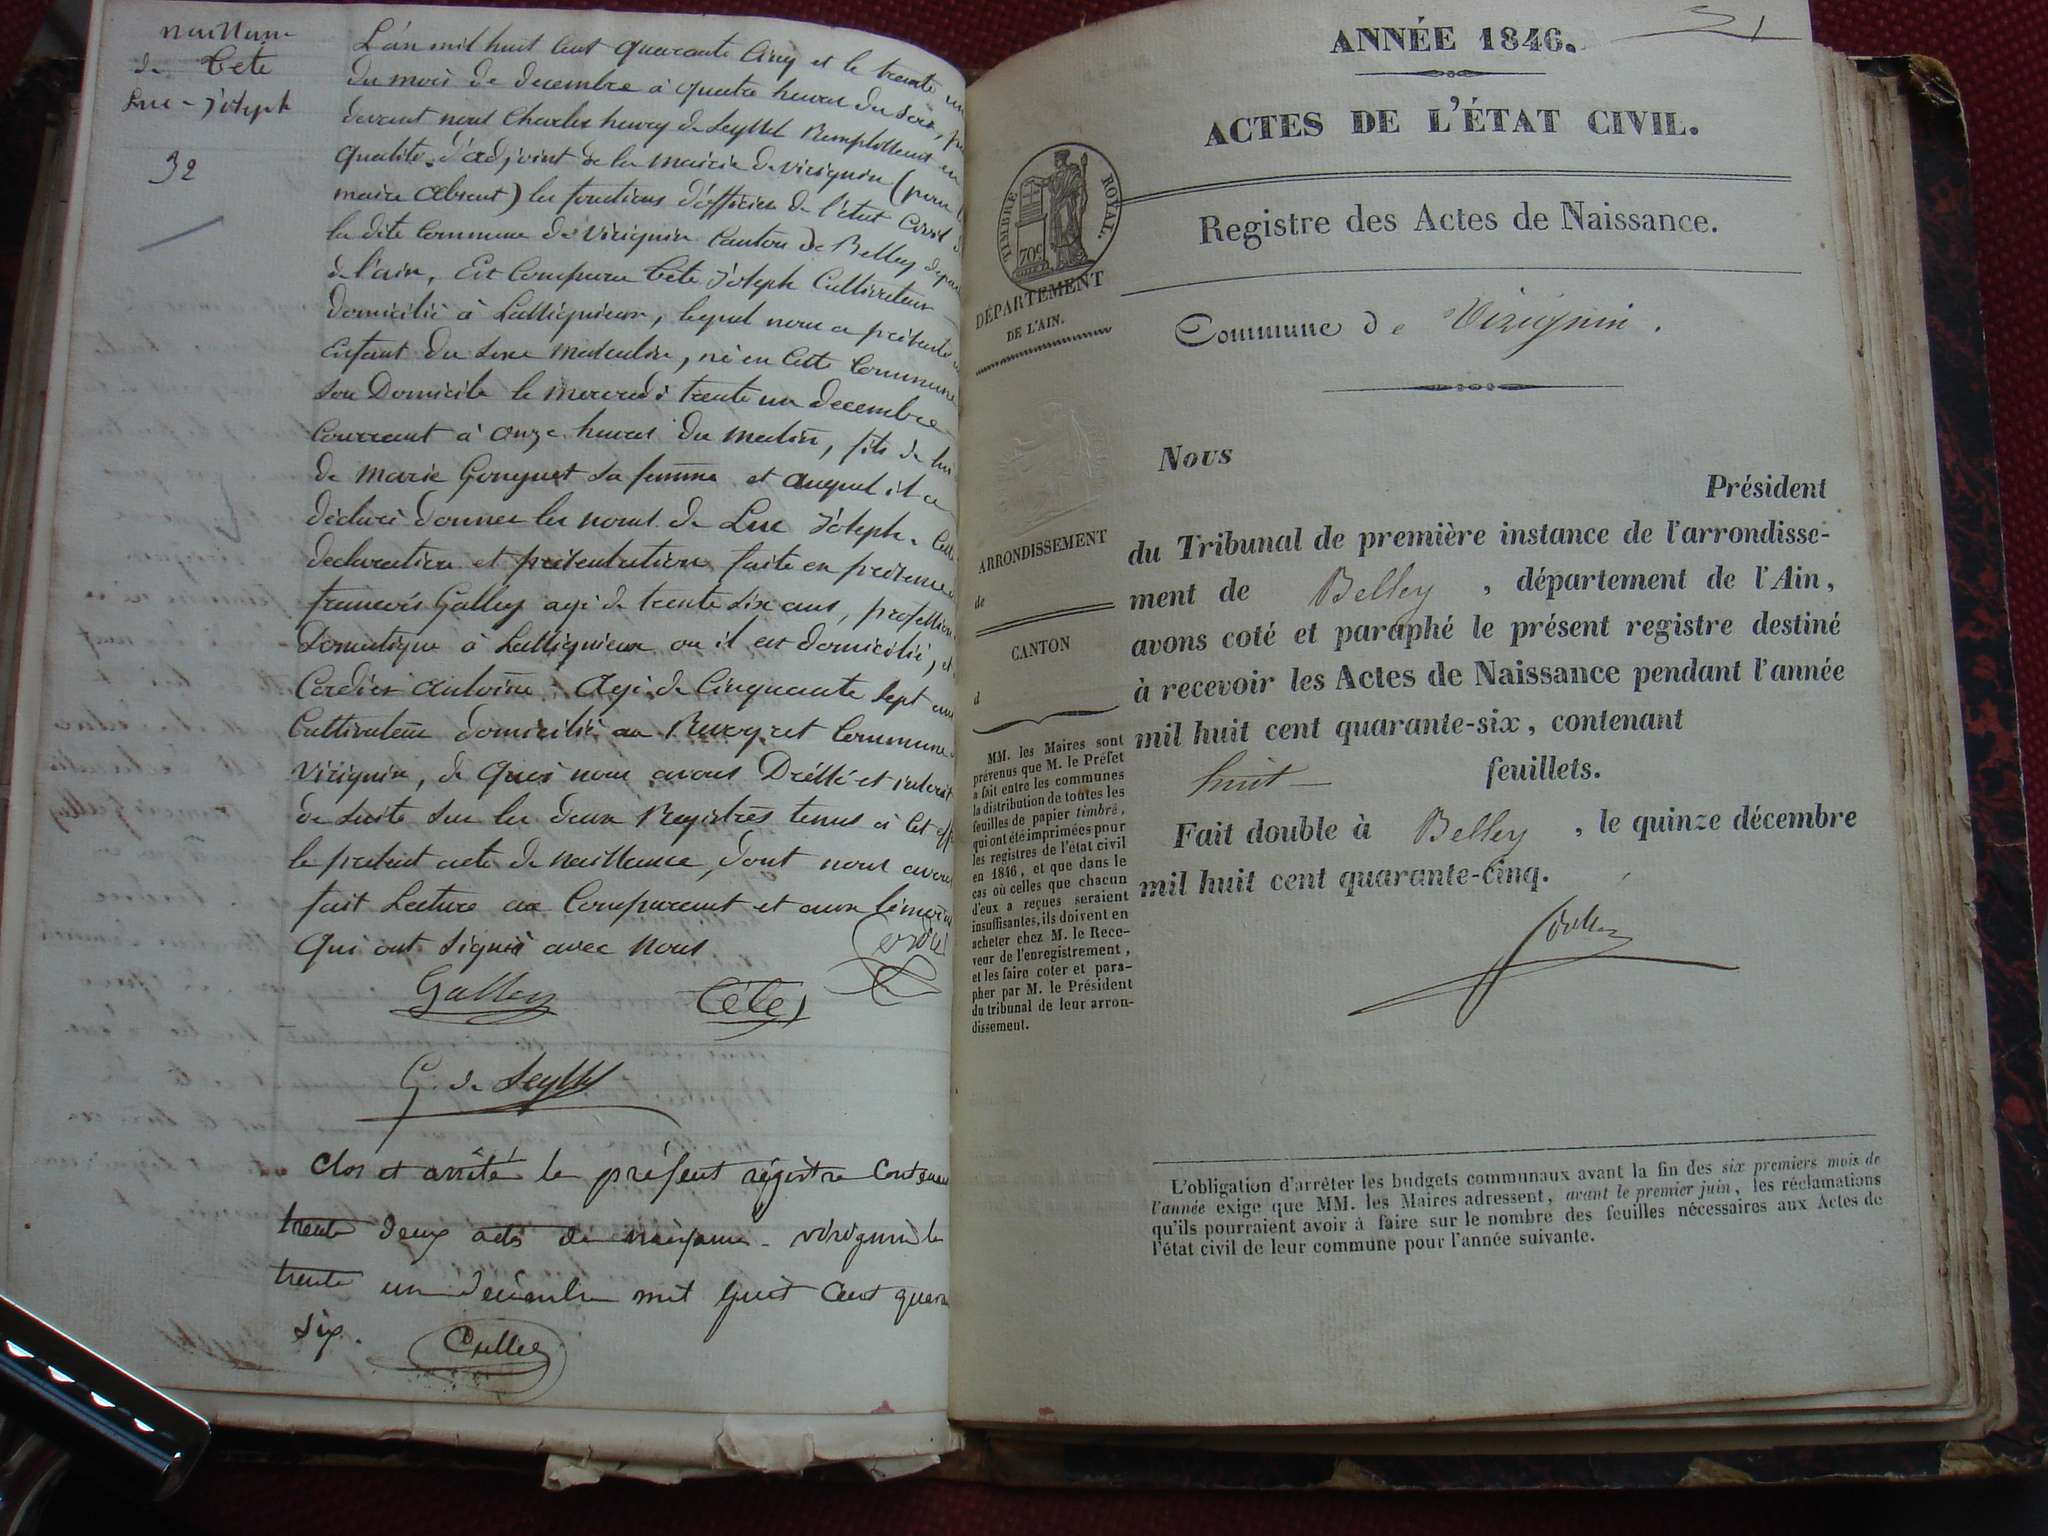 naissance
de Cete
Luc-Joseph
32
L'an mil huit cent quarante Cinq et le trente un
du mois de decembre à quatre heures du soir,
devant nous Charles henry de Seyssel Remplissant en
qualité d'adjoint de la mairie de virignin (pour le
maire absent) les fonctions d'officier de l'état Civil
la dite Commune de Virignin Canton de Belley
de l'ain, Est Comparu Cete Joseph Cultivateur
domicilié à Lassignieux, lequel nous a présenté
Enfant du sexe masculin, né en Cette Commune
son Domicile le mercredi trente un decembre
Courrant à onze heures du matin, fils de lui
de marie Gonguet sa femme et auquel il a
déclaré donner les noms de Luc Joseph.
declaration et présentation faite en présence
francois Galley agé de trente six ans, profession
Domestique à Lassignieux ou il est domicilié, et
Cordier antoine agé de Cinquante sept ans
Cultivateur domicilié au Commune
Virignin, de quoi nous avons Dréssé et
de suite sur les deux Registres tenus à Cet
le présent acte de naissance, dont nous avons
fait Lecture au Comparant et aux témoins
Qui ont signés avec Nous
Galley Cete
G. de Seyssel
Clos et arrêté le présent régistre Contenant
trente deux actes de naissance virignin le
trente un decembre mil huit Cent
six.
ANNÉE 1846.
ACTES DE L'ÉTAT CIVIL.
TIMBRE ROYAL.
70c
DÉPARTEMENT
DE L'AIN.
Registre des Actes de Naissance.
Commune de Virignin.
Nous
Président
du Tribunal de première instance de l'arrondisse-
ment de Belley, département de l'Ain,
avons coté et paraphé le présent registre destiné
à recevoir les Actes de Naissance pendant l'année
mil huit cent quarante-six, contenant
huit feuillets.
Fait double à Belley, le quinze décembre
mil huit cent quarante-cinq.
ARRONDISSEMENT
de
CANTON
d
MM. les Maires sont
prévenus que M. le Préfet
a fait entre les communes
la distribution de toutes les
feuilles de papier timbré,
qui ont été imprimées pour
les registres de l'état civil
en 1846, et que dans le
cas où celles que chacun
d'eux a reçues seraient
insuffisantes, ils doivent en
acheter chez M. le Rece-
veur de l'enregistrement,
et les faire coter et para-
pher par M. le Président
du tribunal de leur arron-
dissement.
L'obligation d'arrêter les budgets communaux avant la fin des six premiers mois de
l'année exige que MM. les Maires adressent, avant le premier juin, les réclamations
qu'ils pourraient avoir à faire sur le nombre des feuilles nécessaires aux Actes de
l'état civil de leur commune pour l'année suivante.